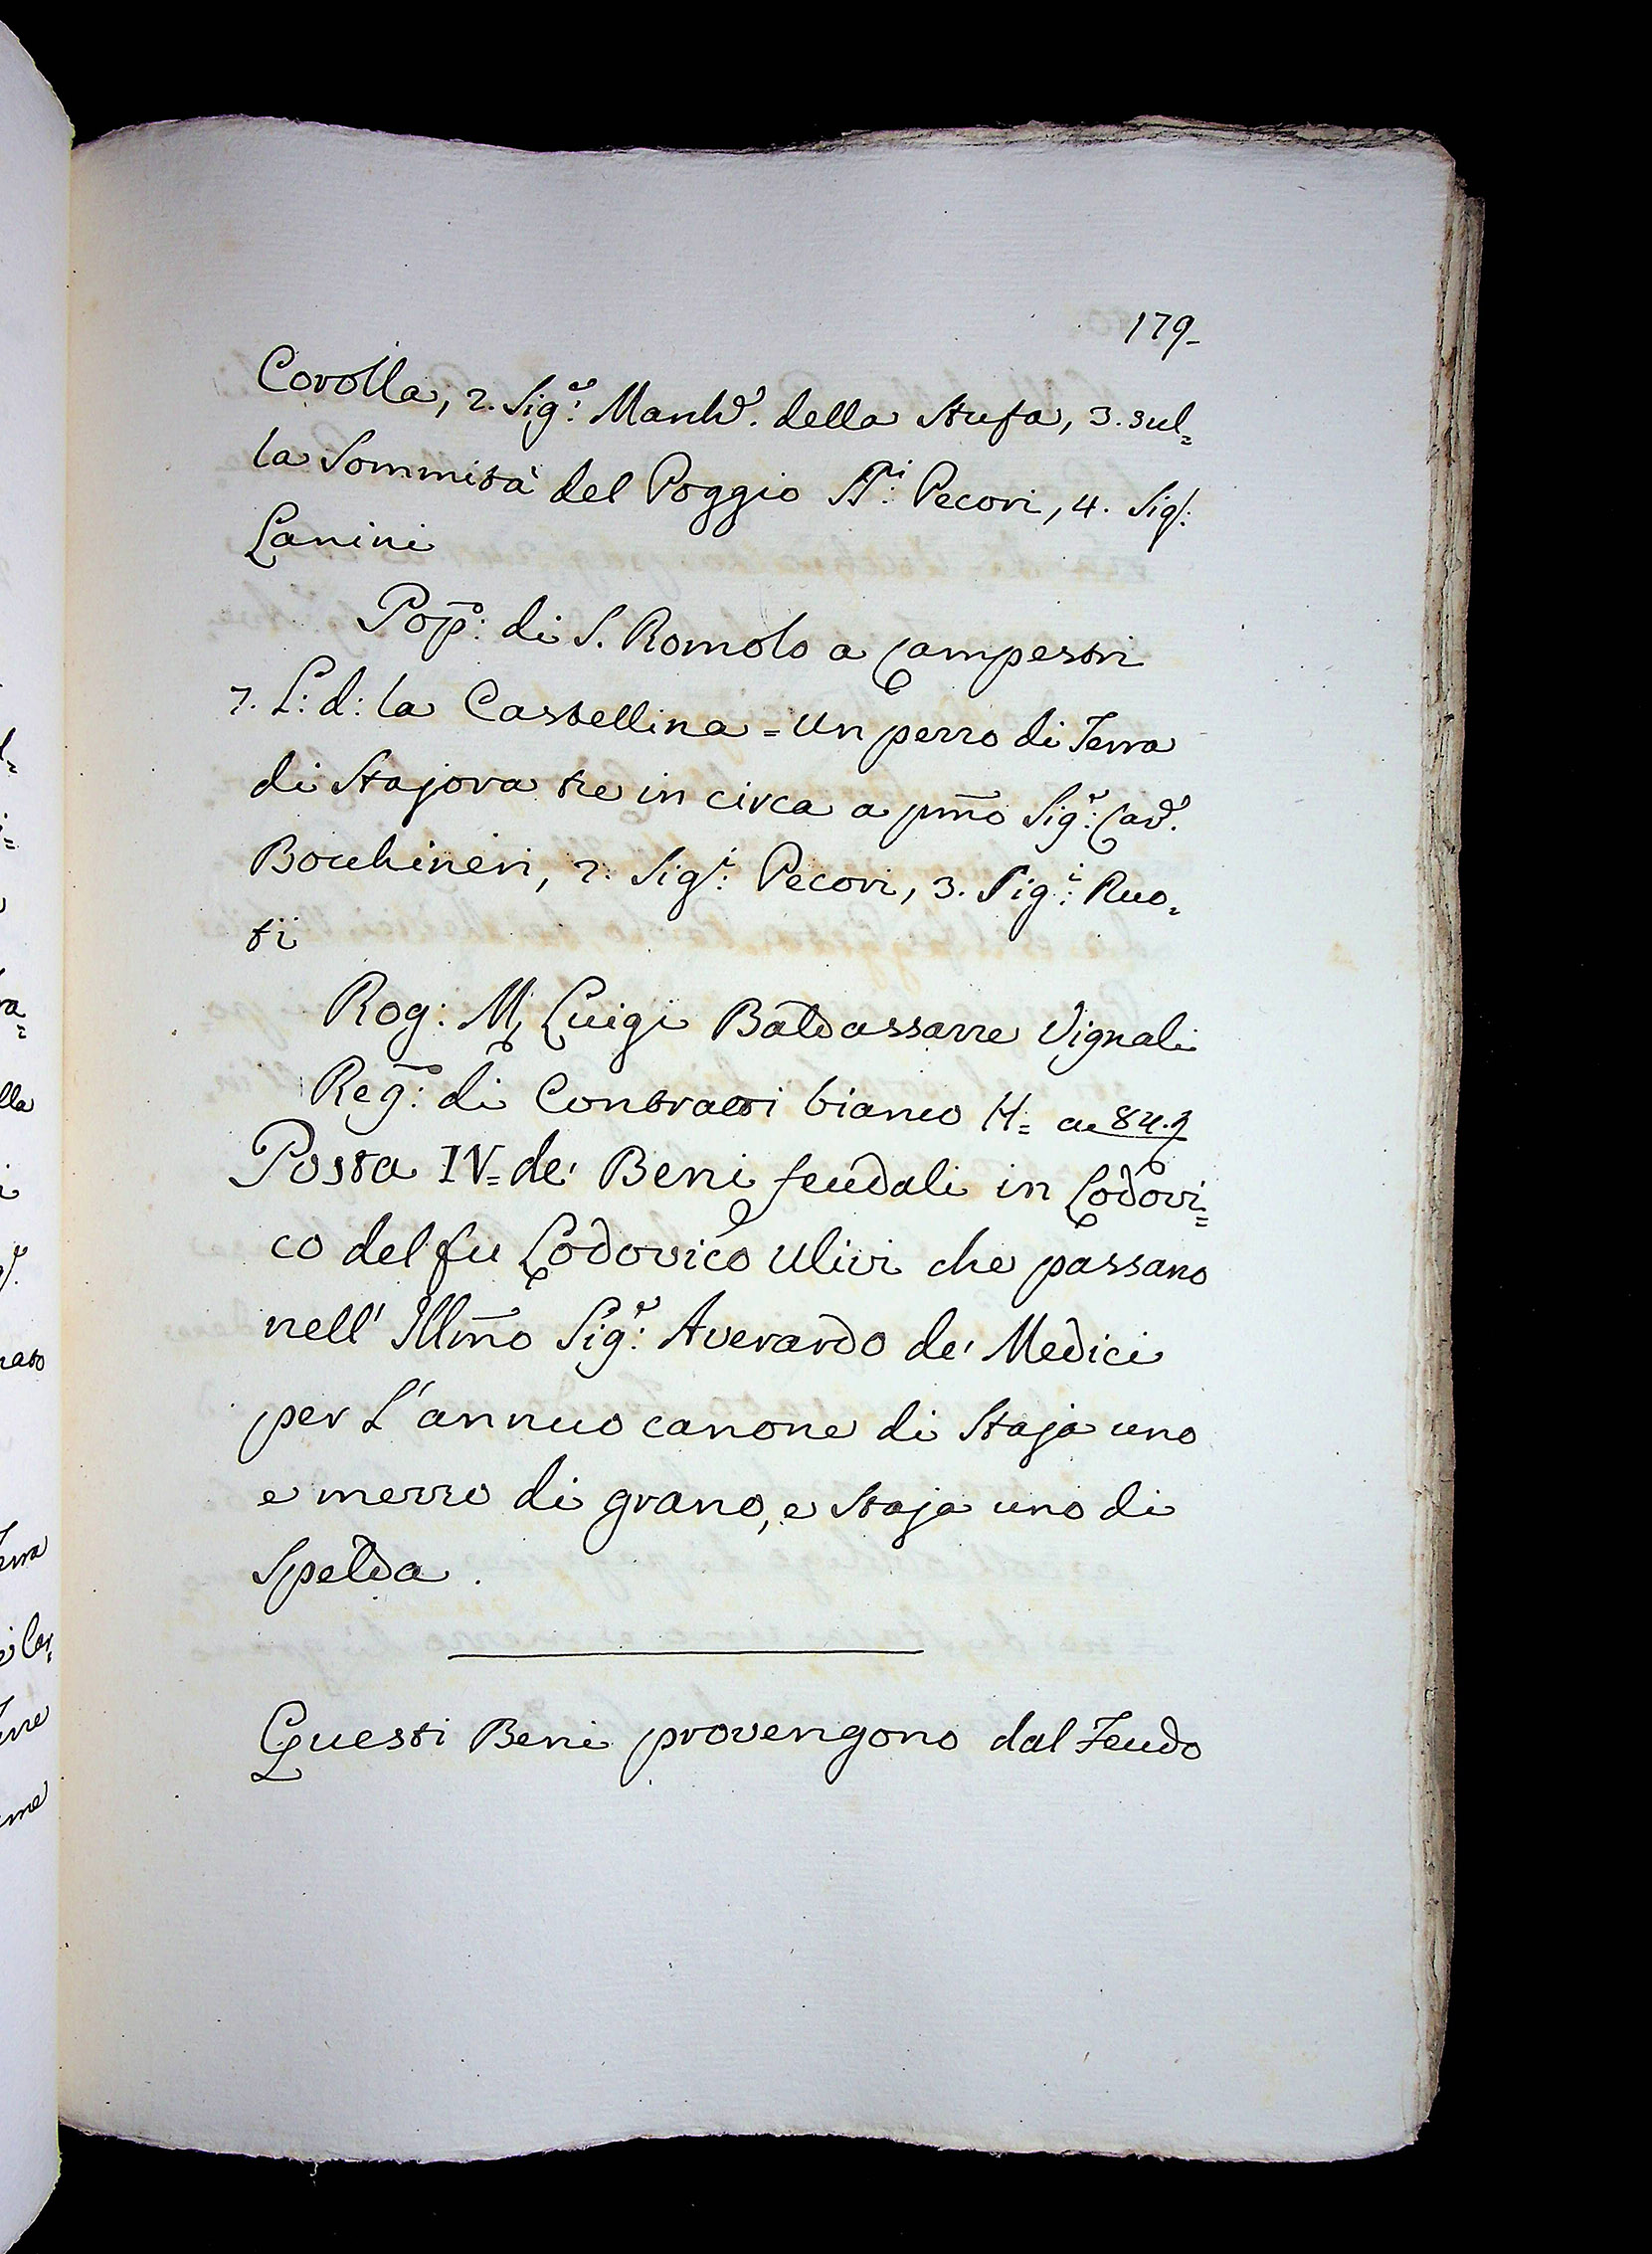 179.
Corolla, 2. Sig.r March. della Stufa, 3. sul=
la Sommità del Poggio SS.ri Pecori, 4. Sig.r
Lanini
Pop.o: di S. Romolo a Campestri
7. L: d: la Castellina = Un pezzo di Terra
di Stajora tre in circa a pmo Sig.r Cav.
Bocchineri, 2. Sig.ri Pecori, 3. Sig.ri Ruo=
ti
Rog: M, Luigi Baldassarre Vignali
Reg.o: di Contratti bianco H= a 84.
Posta IV= de' Beni feudali in Lodovi=
co del fu Lodovico Ulivi che passano
nell' Illmo Sig.r Averardo de' Medici
per L'annuo canone di Staja uno
e mezzo di grano, e Staja uno di
Spelda.
Questi Beni provengono dal Feudo